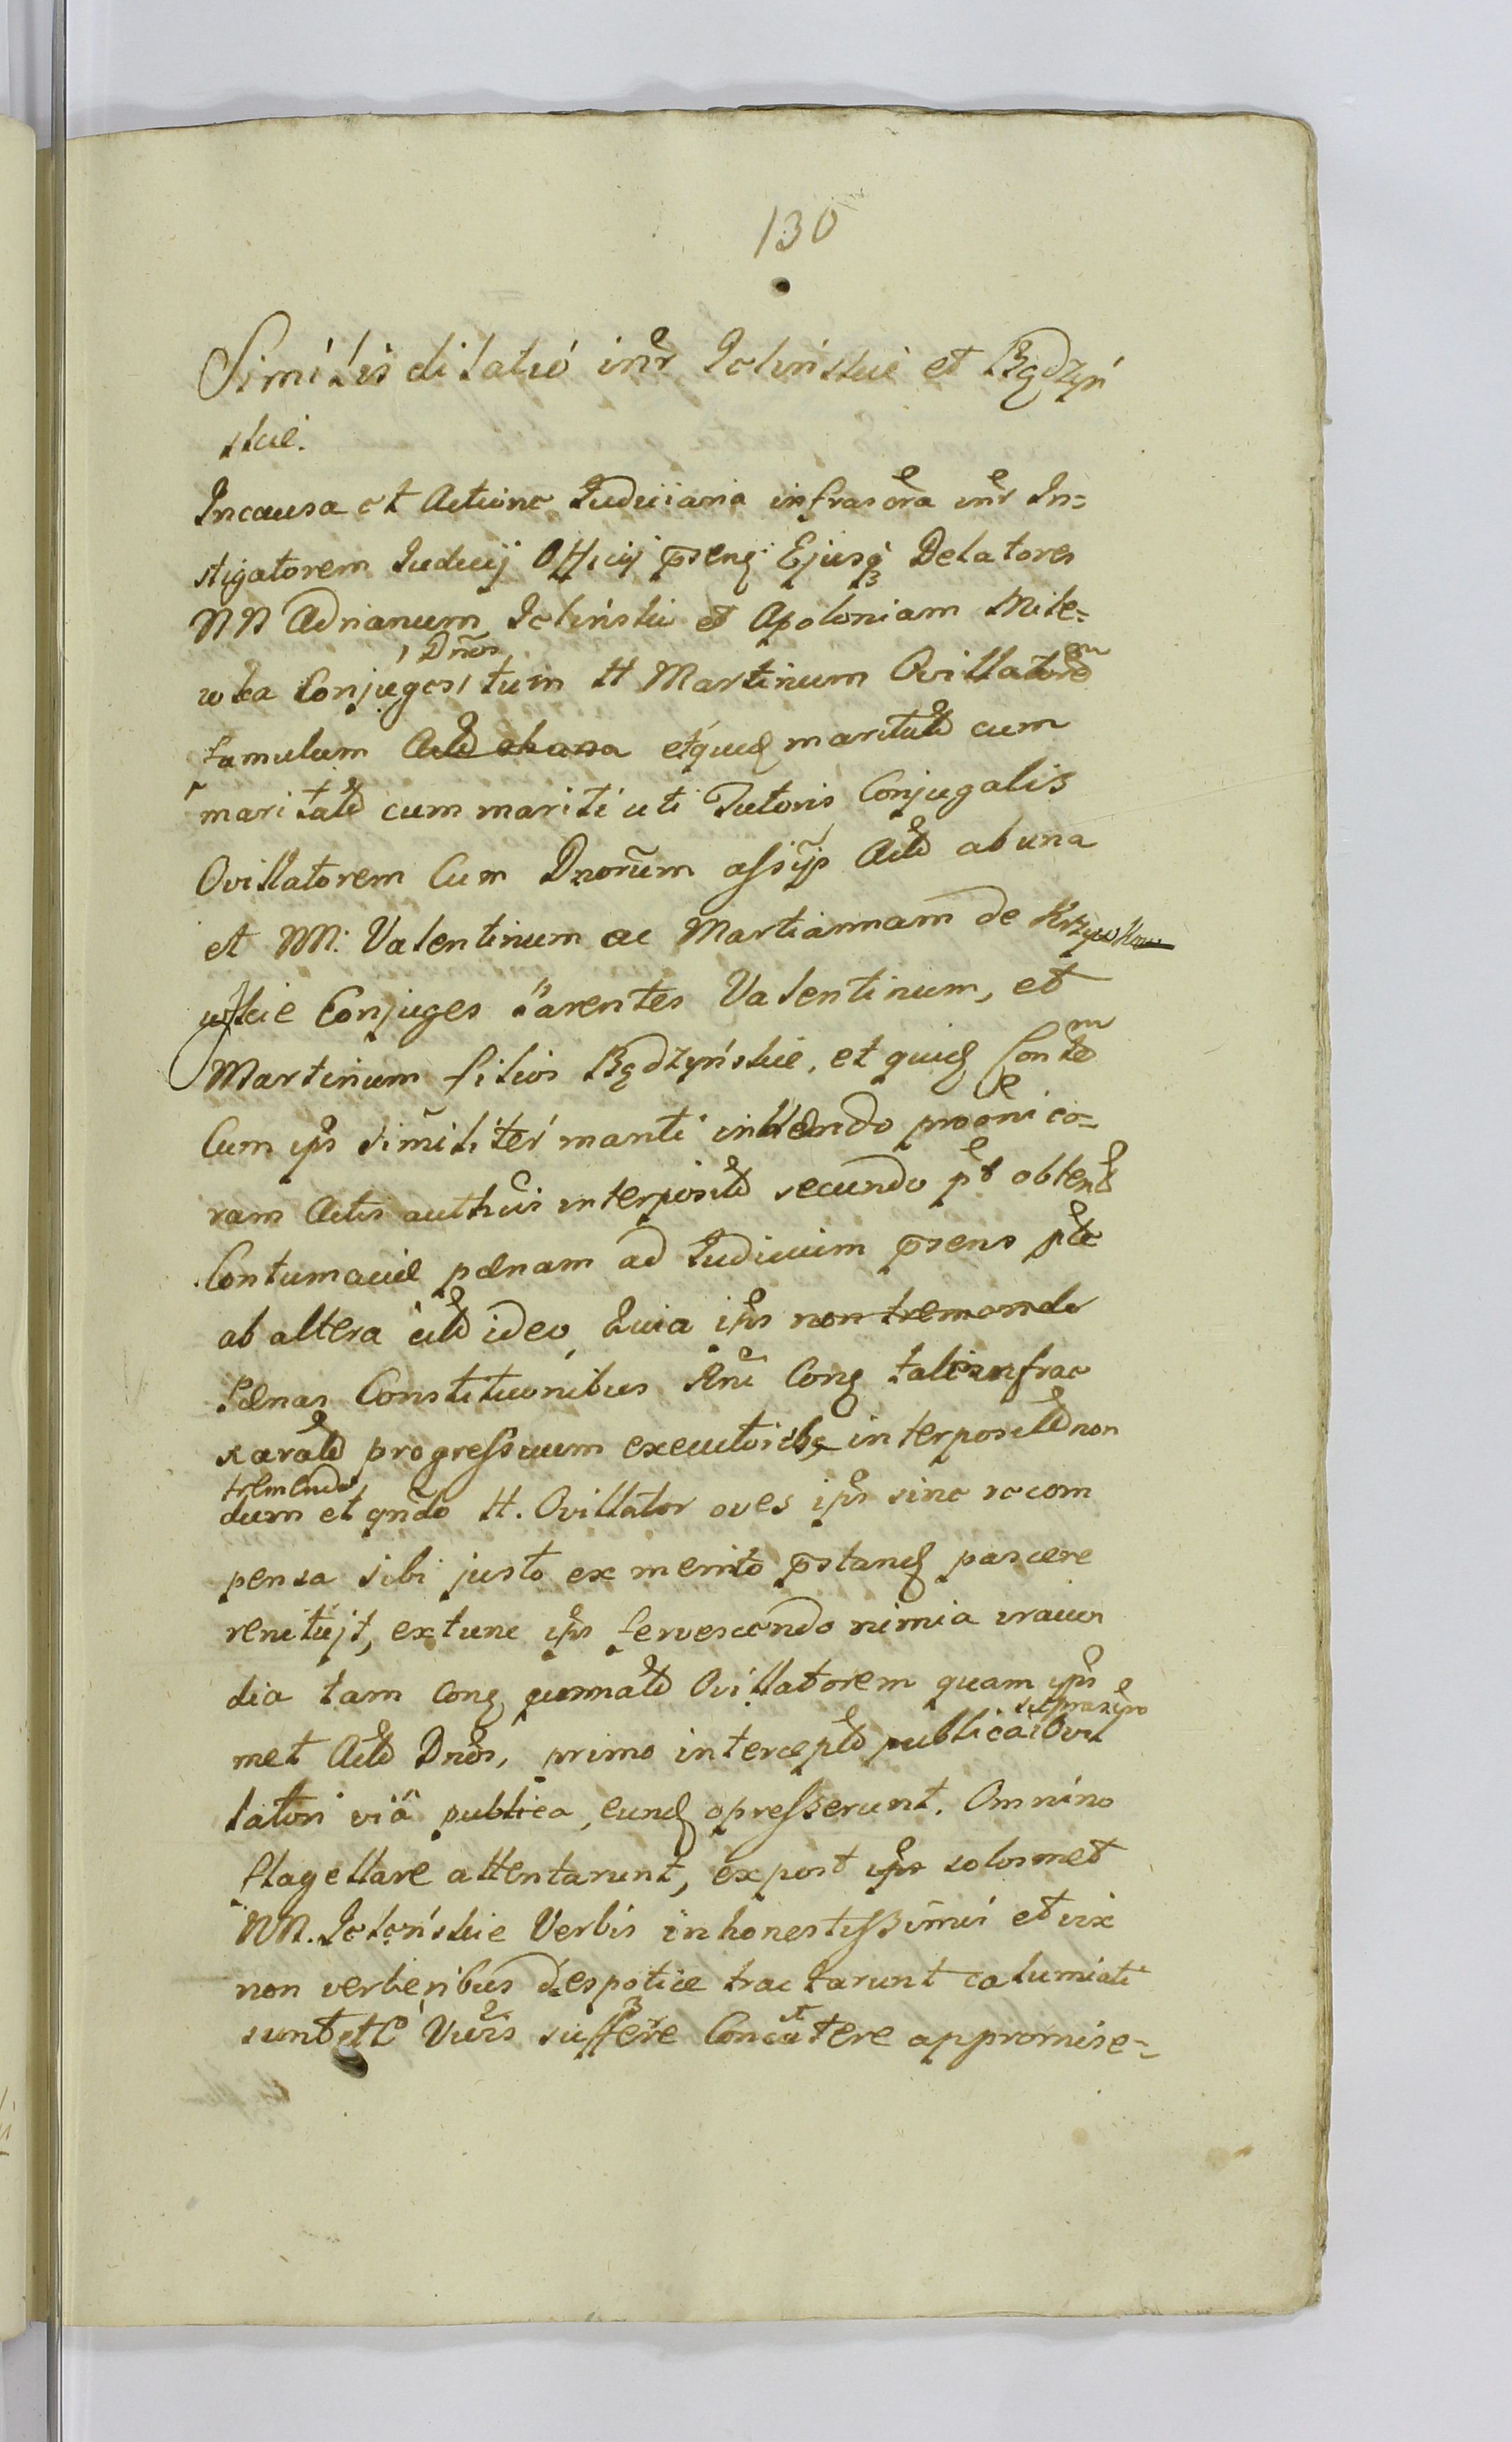 130
Similis dilatio inr̃ Jeliński et Bądzyń
skie.
In causa et Actione Judiciaria infrascra inr̃ In=
stigatorem Judicij Officij psenq Ejusq Delatores
NN Adrianum Jeliński et Apoloniam Mile=
wska Conjuges, Dnos, tum H Martinum Ovillatorem
famulum etquid maritatã cum
maritatã cum mariti uti Tutoris Conjugalis
Ovillatorem Cum Dnorum assijs Actã ab una
et NN: Valentinum ac Martiannam de
Conjuges Parentes Valentinum, et
Martinum filios Bądzyńskie, et quid
Cum ips similiter manti inhærendo proõni co=
ram Actis authcis interpositã secundo pt obtentã
Contumaciæ pænam ad Judicium psens ptæ
ab altera actã ideo, Quia ips non tremendo
Pænas Constitutionibus Rni Conq talisinfrac
xaratã progressuum executoribq interpositã non
tremendo
dum et qndo H. Ovillator oves ips sine recom
pensa sibi justo ex merito pstand pascere
renitujt, extunc ips fervescendo nimia iracun
dia tam Conq Ovillatorem quam ips
suprascrpto
met Actã Dnos, primo interceptã publica Ovil
latori viâ publica, eund opresserunt. Omnino
flagellare attentarunt, ex post ips solosmet
NN. Jelońskie Verbis inhonestissimis et vix
non verberibus despotice tractarunt calumiati
sunt etc Vures sufferre Concutere appromise=